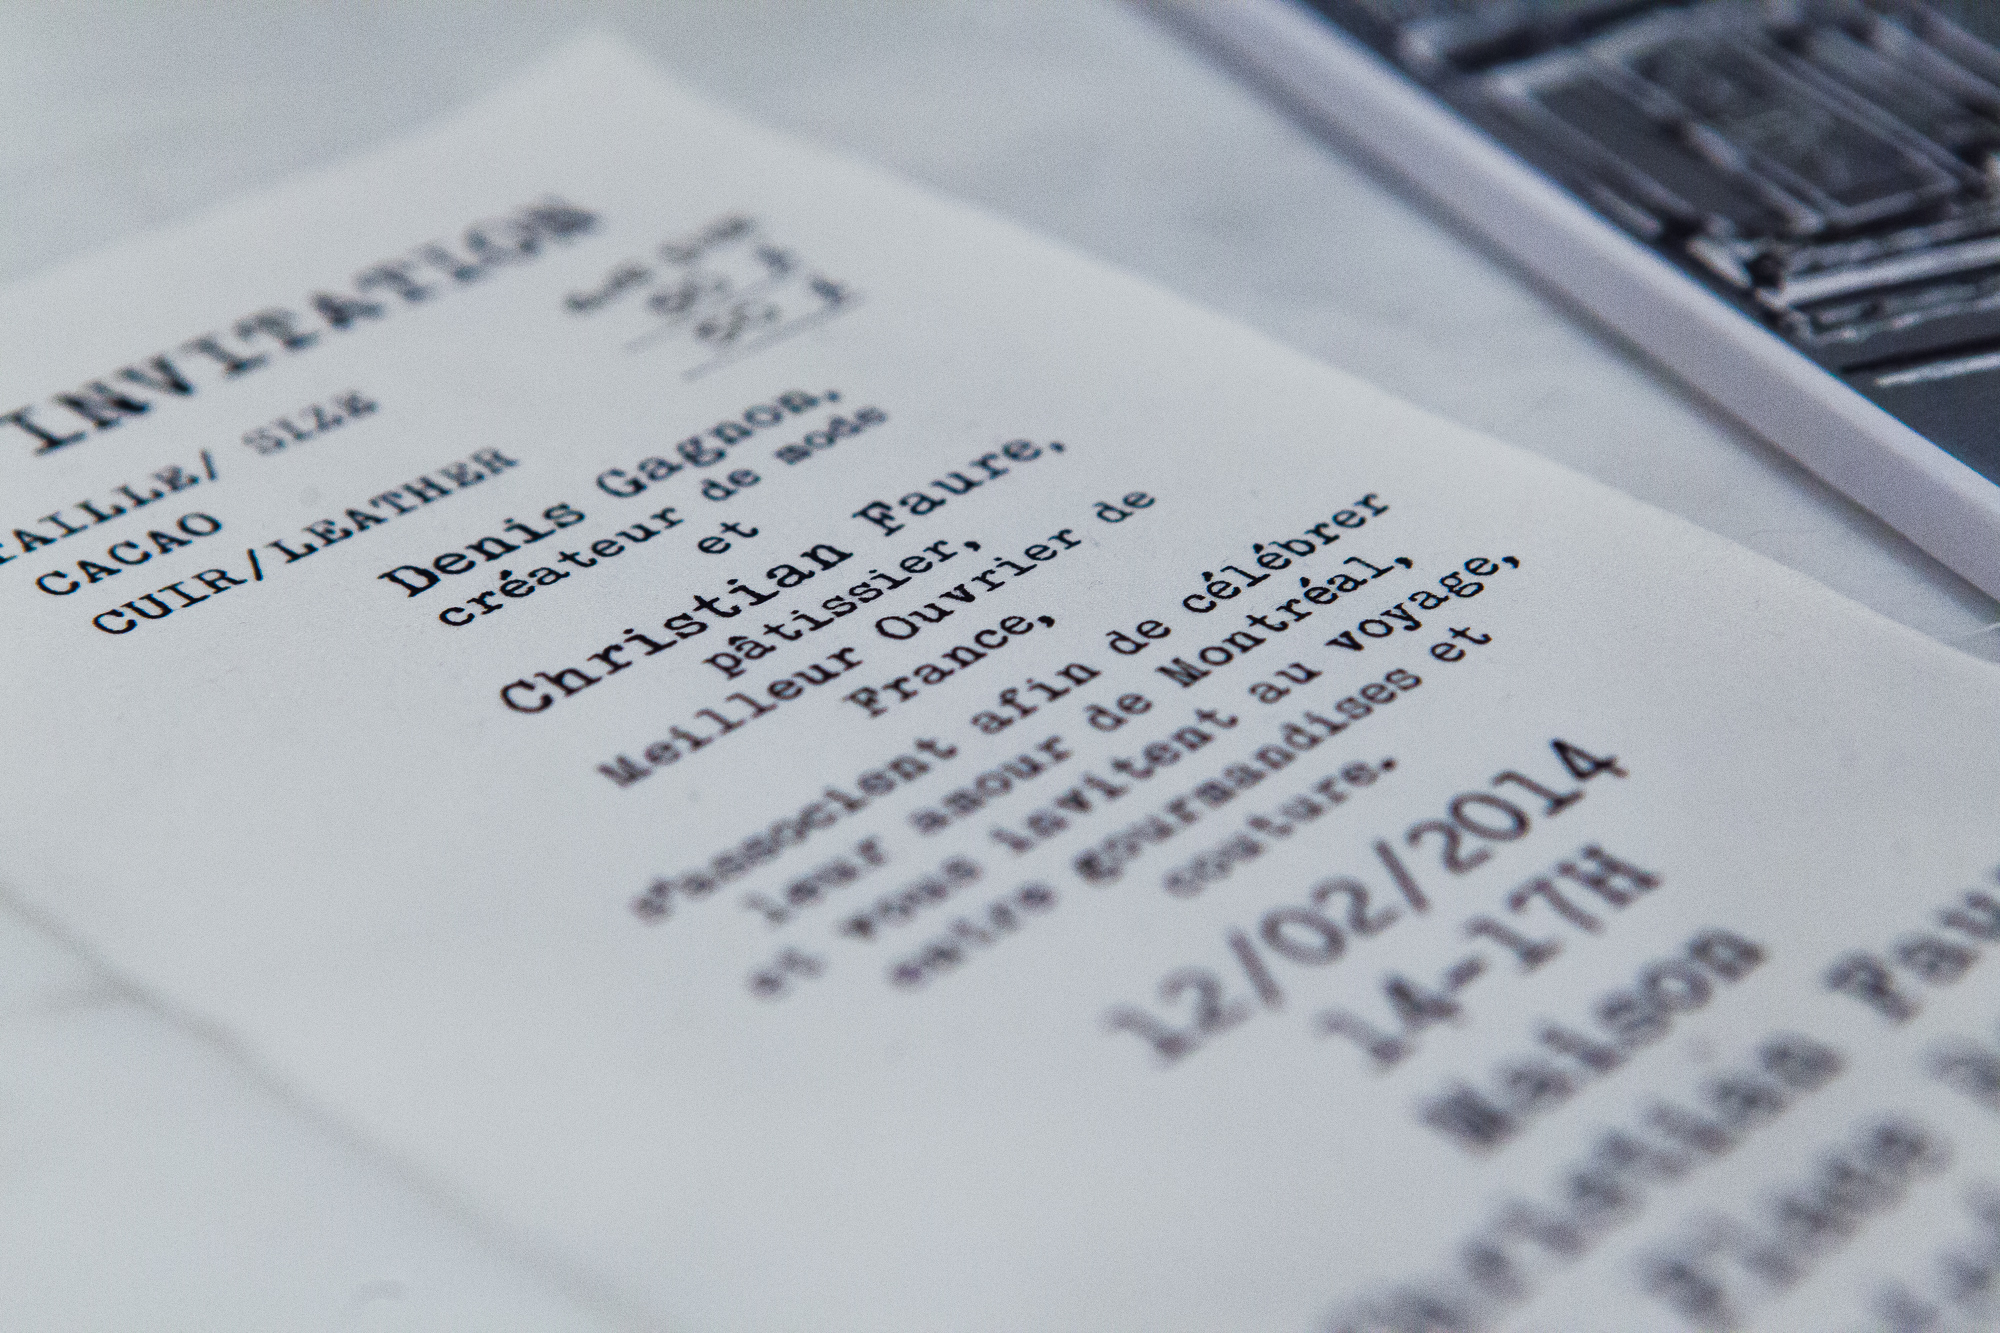 INVITATION
TAILLE/ SIZE
CACAO
CUIR/LEATHER
Denis Gagnon,
créateur de mode
et
Christian Faure,
pâtissier,
Meilleur Ouvrier de
France,
s'associent afin de célébrer
leur amour de Montréal,
et vous invitent au voyage,
entre gourmandises et
couture.
12/02/2014
14-17H
Maison
Christian Faure
Place